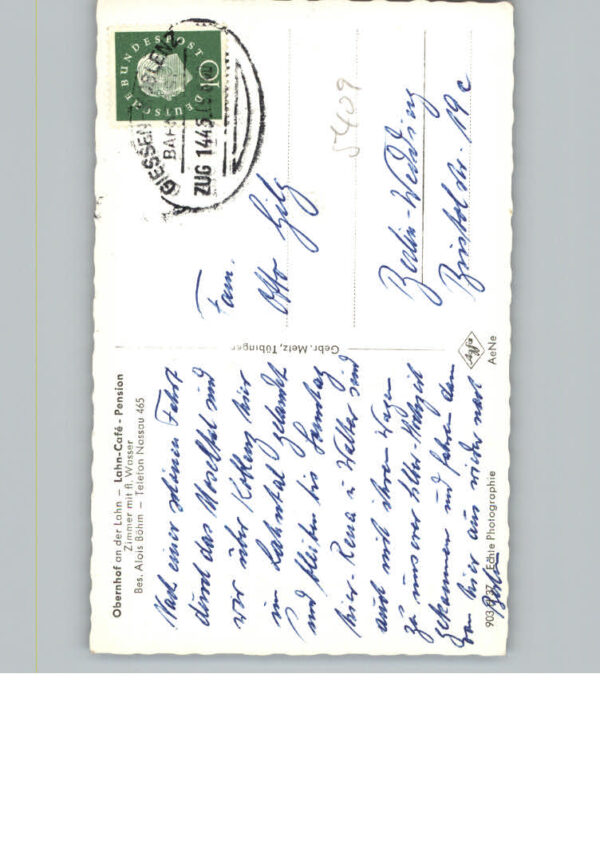 Obernhof an der Lahn – Lahn-Café - Pension
Zimmer mit fl. Wasser
Bes. Alois Böhm – Telefon Nassau 465
Nach einer schönen Fahrt
durch das Moseltal sind
wir über Koblenz hier
im Lahntal gelandet
und bleiben bis Samstag
hier. Rena u. Walter sind
auch mit ihrem Wagen
zu unserer Silber-Hochzeit
gekommen und fahren dann
von hier aus wieder nach
903 37 Echte Photographie
Gebr. Metz, Tübingen
Agfa
AeNe
DEUTSCHE BUNDESPOST
10
GIESSEN
ZUG 1445
5409
Fam.
Otto Gilz
Berlin-Wedding
Bristol str. 19c